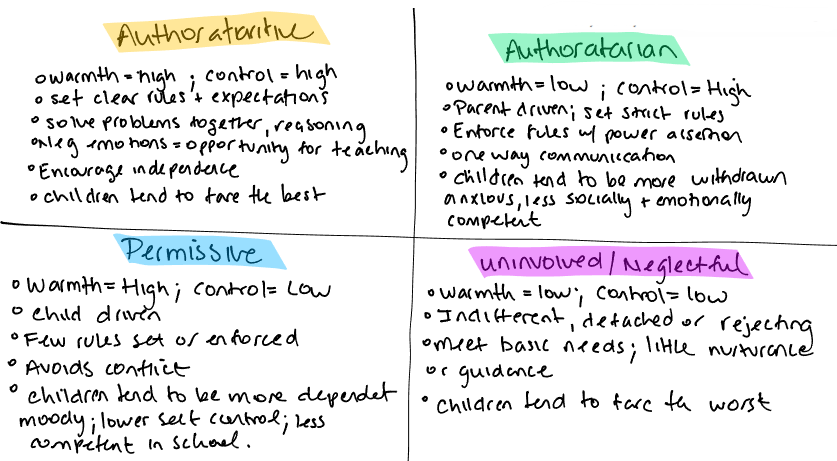 Authoratoritive
• warmth = high ; control = high
• set clear rules + expectations
• solve problems together, reasoning
• Neg emotions = opportunity for teaching
• Encourage independence
• children tend to fare the best
Authoratarian
• warmth = low ; control = High
• Parent driven; set strict rules
• Enforce rules w/ power assertion
• one way communiccation
• Children tend to be more withdrawn
anxious, less socially + emotionally
competent
Permissive
• Warmth = High ; control = Low
• child driven
• Few rules set or enforced
• Avoids conflict
• children tend to be more dependet
moody; lower self control; less
competent in school.
uninvolved / Neglectful
• warmth = low ; control = low
• Indifferent, detached or rejecting
• meet basic needs; little nurturance
or guidance
• children tend to fare th worst